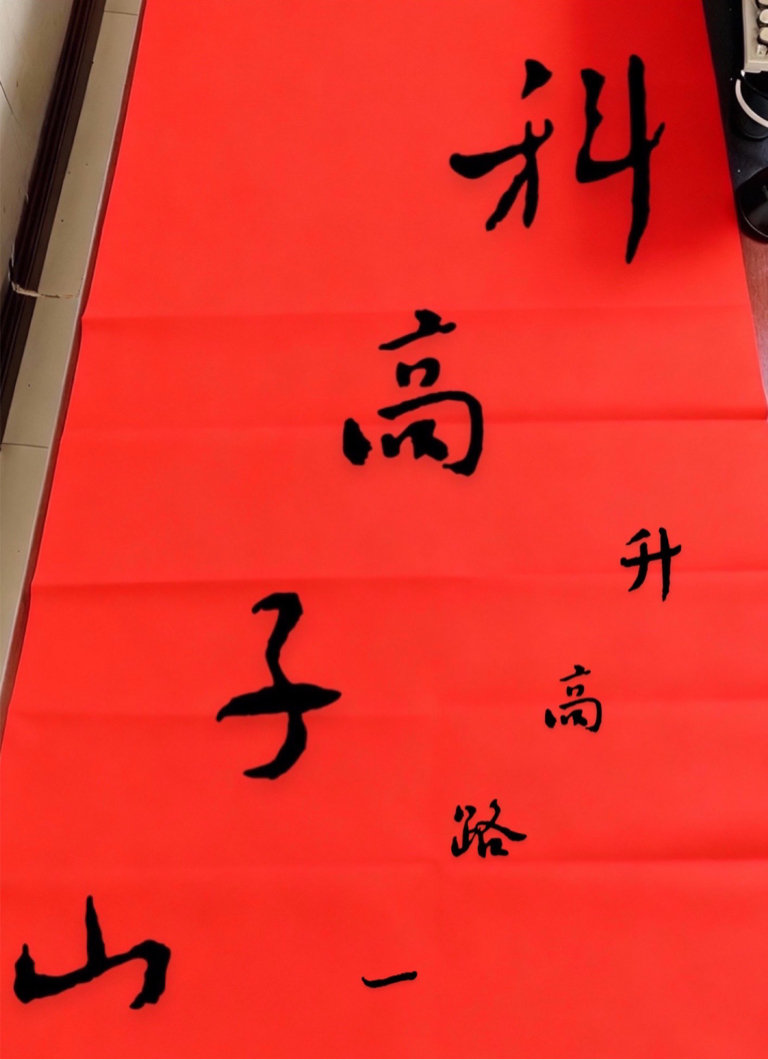 山子高科
一路高升